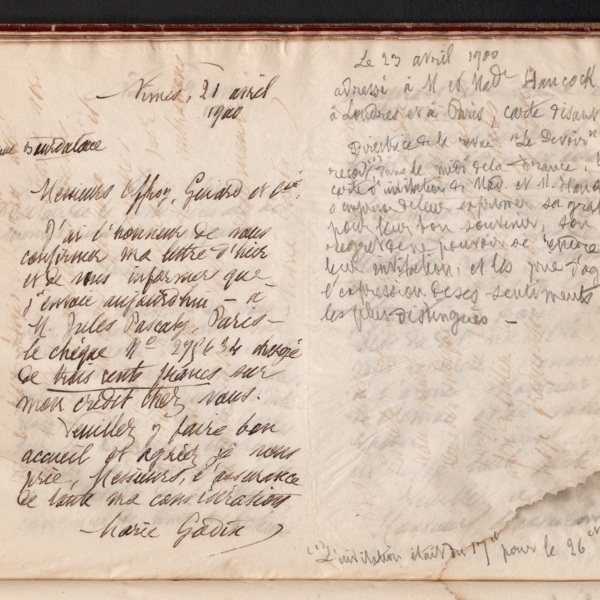 Nîmes, 21 avril
1900
rue Bourdaloue
Messieurs Offroy, Guiard et Cie.
J'ai l'honneur de vous
confirmer ma lettre d'hier
et de vous informer que
j'envoie aujourdhui – à
M. Jules Pascaly, Paris –
le chèque No 295634
de trois cents francs sur
mon crédit chez vous.
Veuillez y faire bon
accueil et agréer, je vous
prie, Messieurs, l'assurance
de toute ma considération
Marie Godin
Le 23 avril 1900
adressé à M et Made Hancock
à Londres et à Paris, carte disant
Directrice de la revue "Le Devoir"
reçoit dans le midi de la France,
carte d'invitation de Mad et M. Hancock
s'empresse de leur exprimer sa
pour leur bon souvenir, son
regret de ne pouvoir se rendre
leur invitation, et les prie d'ag
l'expression de ses sentiments
les plus distingués –
(1) L'invitation était du 17 pour le 26